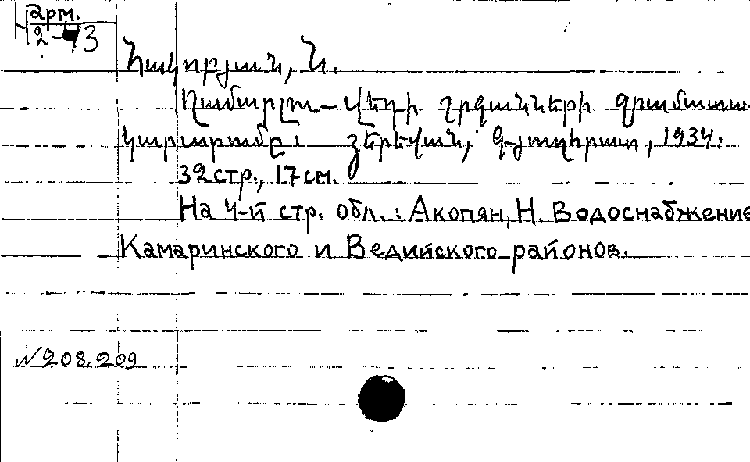 Арм.
2-43
Հակոբյան, Ն.
Ղամարլու-Վեդի շրջանների ջրամատա
կարարումը։ Յերեվան, Գյուղհրատ, 1934.
32 стр., 17 см.
На 4-й стр. обл.: Акопян, Н. Водоснабжение
Камаринского и Ведийского районов.
N 208.209